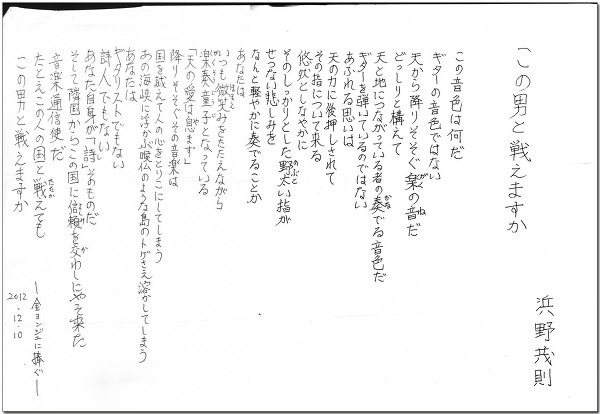 この男と戦えますか
浜野茂則
この音色は何だ
ギターの音色ではない
天から降りそそぐ楽の音だ
どっしりと構えて
天と地につながっている者の奏でる音色だ
ギターを弾いているのではない
あふれる思いは
天の力に後押しされて
その指について来る
悠然としなやかに
そのしっかりとした野太い指が
せつない悲しみを
なんと軽やかに奏でることか
あなたは
いつも微笑みをたたえながら
楽奏童子となっている
「天の愛は息ます」
降りそそぐその音楽は
国を越えて人の心をとりこにしてしまう
あの海峡に浮かぶ喉仏のような島のトゲさえ溶かしてしまう
あなたは
ギタリストでもない
詩人でもない
あなた自身が「詩」そのものだ
そして隣国からこの国に信頼を交わしにやって来た
音楽通信使だ
たとえこの人の国と戦えても
この男と戦えますか
ー金ヨンジに捧ぐー
2012.12.10